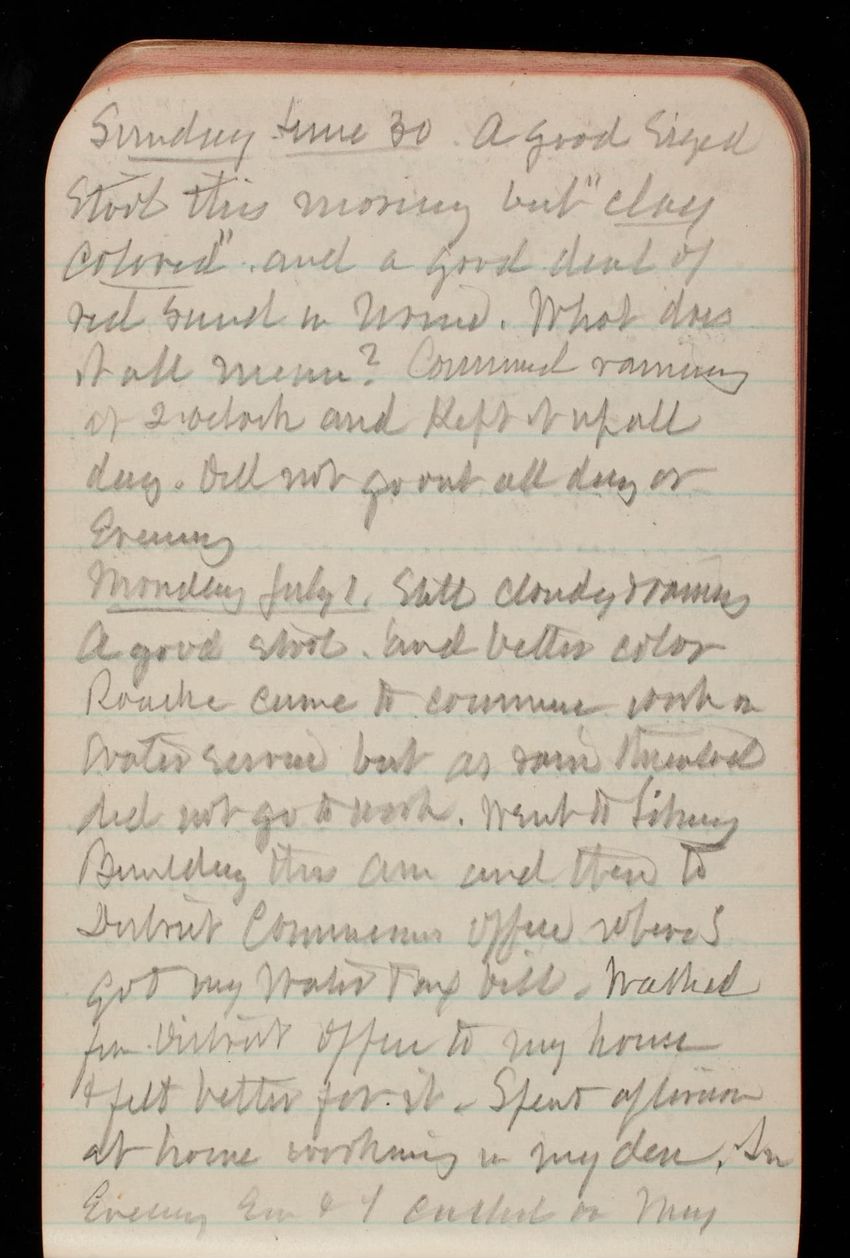 Sunday June 30. A good sized
stool this morning but "clay
colored" and a good deal of
red sand in Urine. What does
it all mean? Commenced raining
at 2 oclock and Kept it up all
day. Did not go out all day or
Evening
Monday July 1. Still cloudy & raining
A good stool. and better color
Roache came to commence work on
Water service but as rain threatened
did not go to work. Went to Library
Building this am and then to
District Commissioners office where I
got my Water Tax bill. Walked
from District Office to my house
& felt better for it. Spent afternoon
at home working in my den. In
Evening Em & I called on May